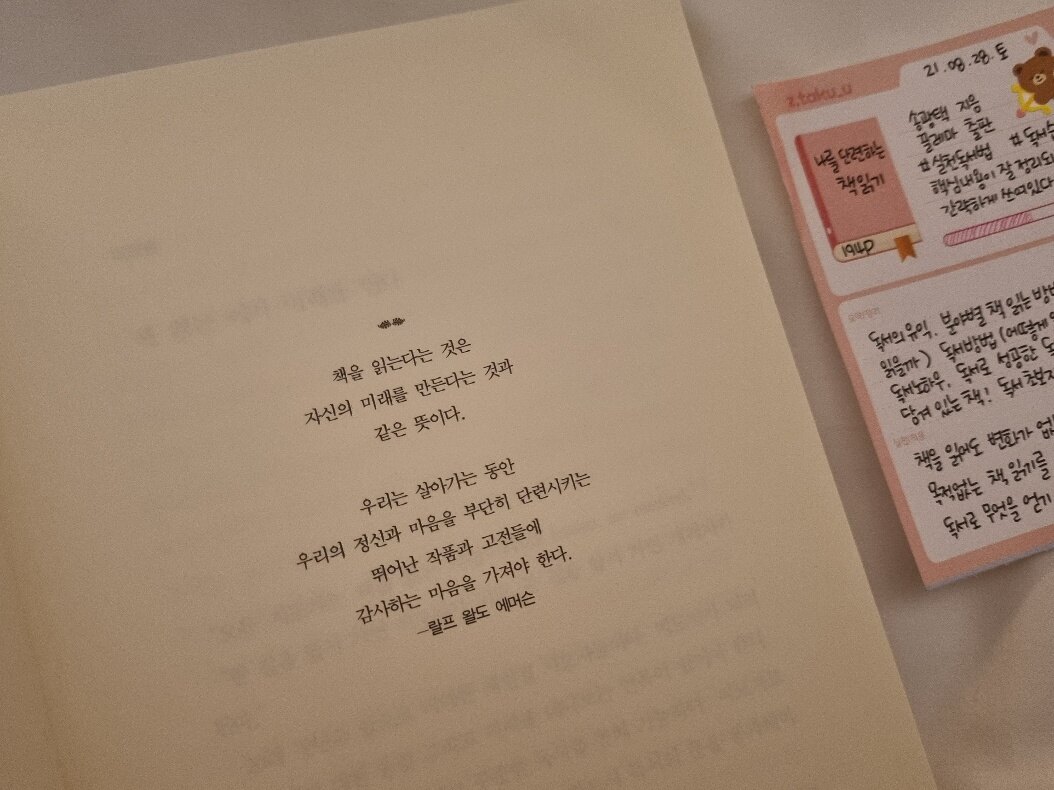 책을 읽는다는 것은
자신의 미래를 만든다는 것과
같은 뜻이다.
우리는 살아가는 동안
우리의 정신과 마음을 부단히 단련시키는
뛰어난 작품과 고전들에
감사하는 마음을 가져야 한다.
—랄프 왈도 에머슨
z.taku_u
21.08.28.토
나를 단련하는
책읽기
194p
송광택 지음
플레마 출판
#실천독서법 #독서
핵심내용이 잘 정리되
간략하게 쓰여있다
독서의 유익. 분야별 책 읽는 방
읽을까) 독서방법 (어떻게
독서노하우. 독서로 성공한
담겨 있는 책! 독서 초보자
책을 읽어도 변화가 없
목적없는 책 읽기를
독서로 무엇을 얻기